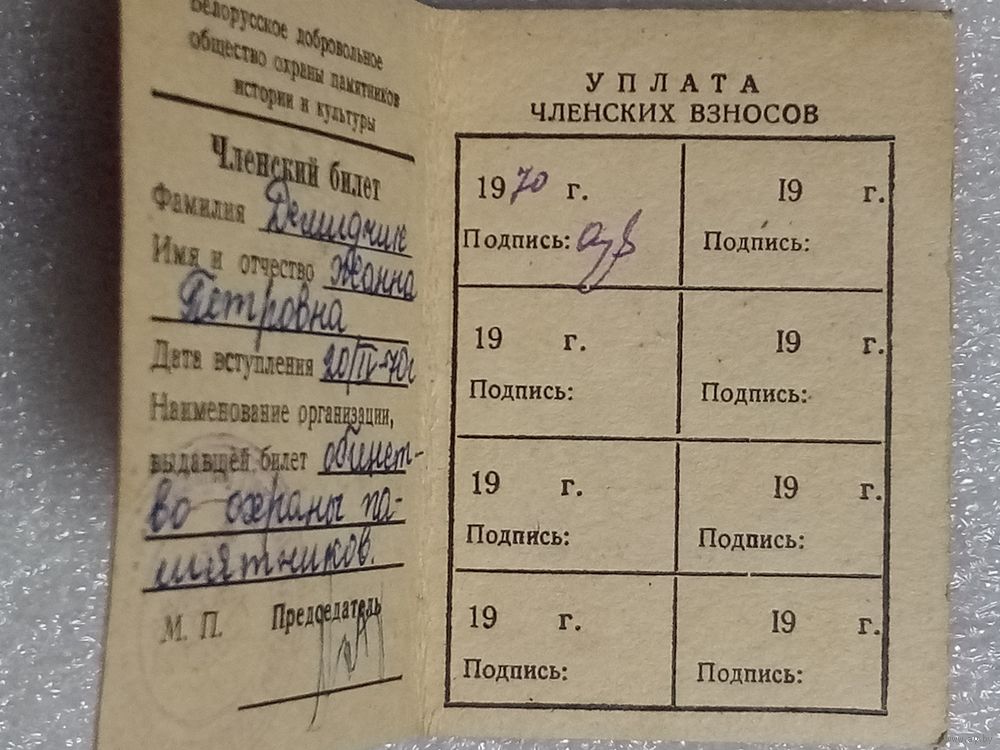 Белорусское добровольное
общество охраны памятников
истории и культуры
Членский билет
Фамилия Демидчик
Имя и отчество Жанна
Петровна
Дата вступления 20/IV-70г
Наименование организации,
выдавшей билет общест-
во охраны па-
мятников.
М. П. Председатель
УПЛАТА
ЧЛЕНСКИХ ВЗНОСОВ
1970 г.
Подпись:
I9 г.
Подпись:
19 г.
Подпись:
I9 г.
Подпись:
19 г.
Подпись:
I9 г.
Подпись:
19 г.
Подпись:
I9 г.
Подпись: